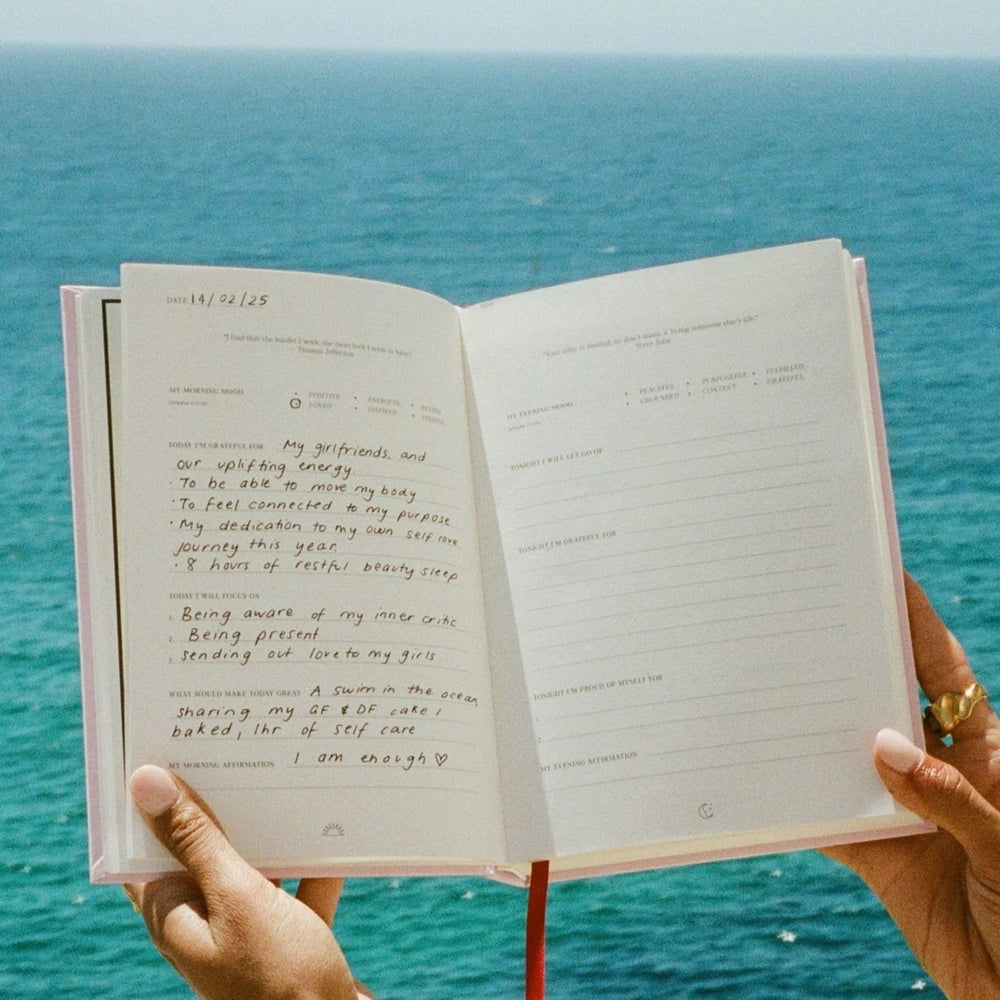 DATE 14/02/25
"I find that the harder I work, the more luck I seem to have."
Thomas Jefferson
MY MORNING MOOD
• POSITIVE • ENERGETIC •
LOVED • INSPIRED •
TODAY I'M GRATEFUL FOR My girlfriends, and
our uplifting energy.
· To be able to move my body
· To feel connected to my purpose
· My dedication to my own self love
journey this year.
· 8 hours of restful beauty sleep
TODAY I WILL FOCUS ON
1. Being aware of my inner critic
2. Being present
3. sending out love to my girls
WHAT WOULD MAKE TODAY GREAT A swim in the ocean,
sharing my GF & DF cake I
baked, 1hr of self care
MY MORNING AFFIRMATION I am enough ♡
"Your time is limited, so don't waste it living someone else's life."
Steve Jobs
MY EVENING MOOD
• PEACEFUL • PURPOSEFUL • FULFILLED
• GROUNDED • CONTENT • GRATEFUL
TONIGHT I WILL LET GO OF
TONIGHT I'M GRATEFUL FOR
TONIGHT I'M PROUD OF MYSELF FOR
1.
2.
MY EVENING AFFIRMATION